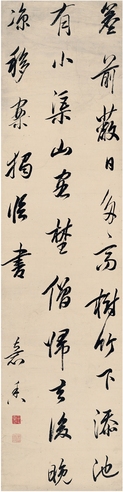 簷前蔽日多高樹竹下添池
有小渠山寺野僧歸去後晚
涼移案獨臨書